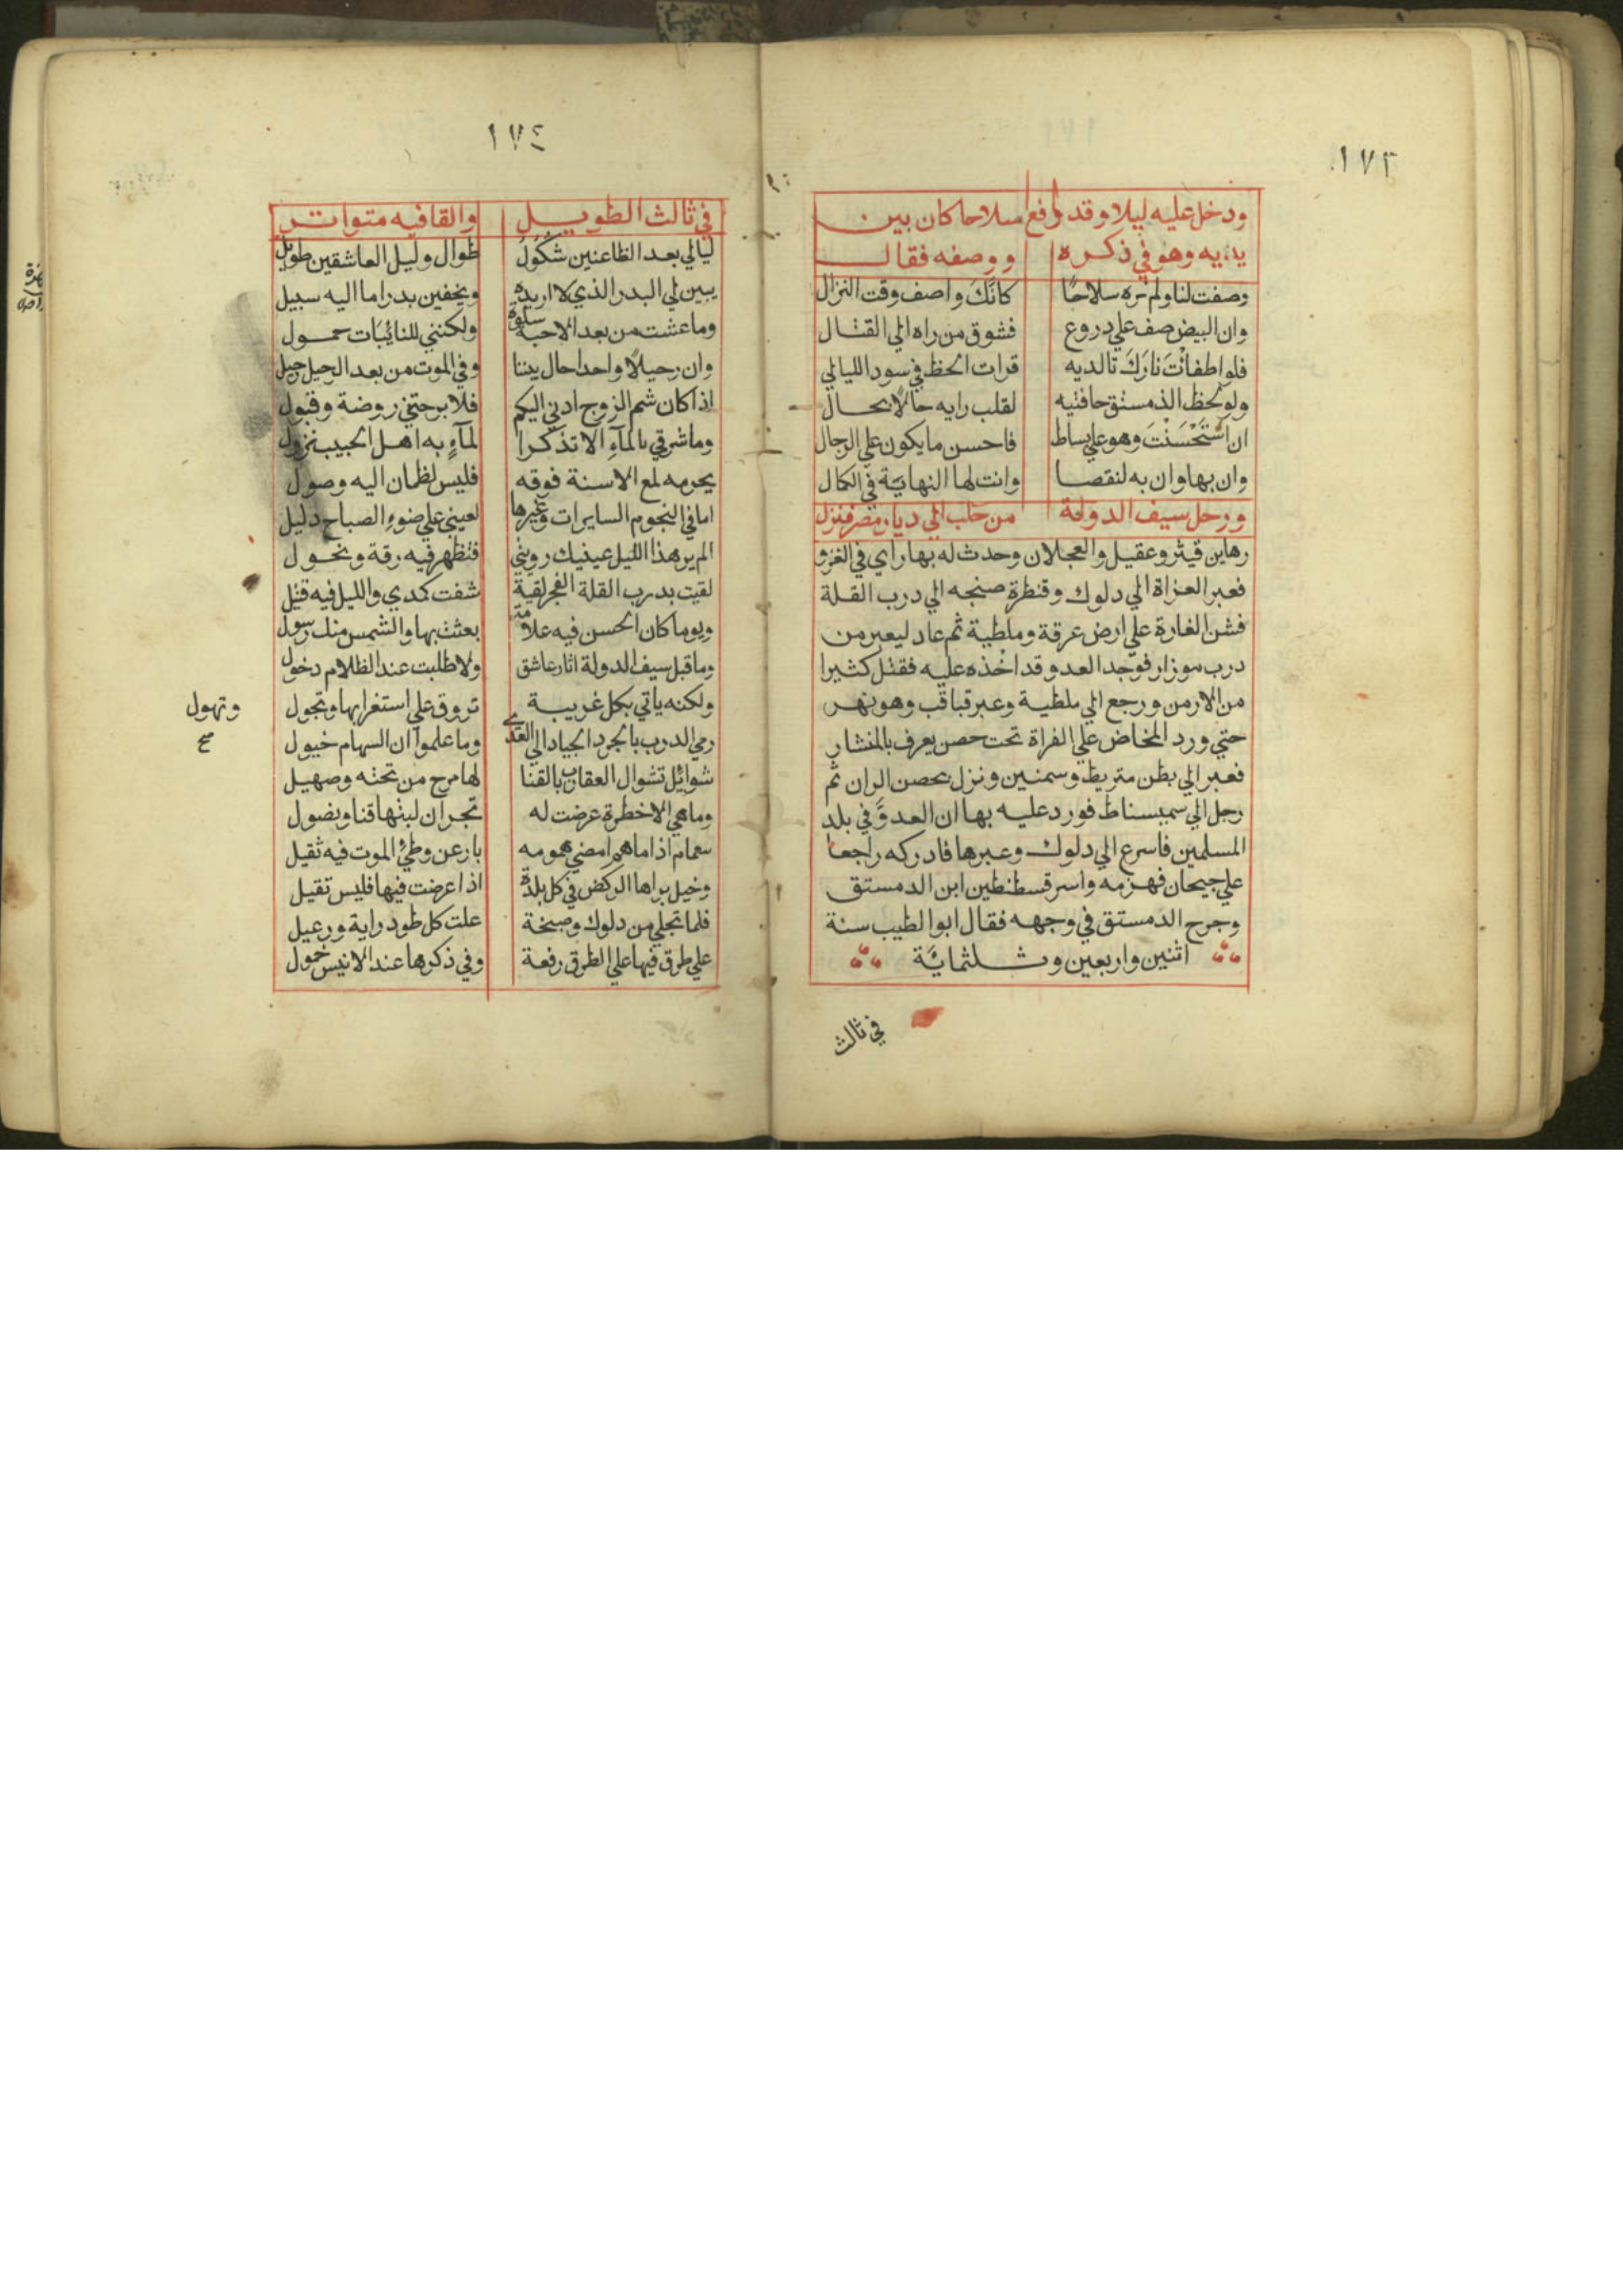 ١٧٣
ودخل عليه ليلا وقد رافع سلاحا كان بين
يديه وهو في ذكره ووصفه فقال
وصفت لنا ولم نره سلاحا كانك واصف وقت النزال
وان البيض صف علي دروع فشوق من راه الي القتال
فلو اطفأت نارك تالديه قرات الخط في سود الليالي
ولو لحظ الدمستق حافتيه لقلب رايه حالا بحال
ان استحسنت وهو علي بساط فاحسن ما يكون علي الرجال
وان بها وان به لنقصا وانت لها النهاية في الكمال
ورحل سيف الدولة من حلب الي ديار مصر فنزل
وعقيل والعجلان وحدث له بها راي في الغزو
فعبر الغزاة الي دلوك وقنطرة صنجه الي درب القلة
فشن الغارة علي ارض عرقة وملطية ثم عاد ليعبر من
درب موزار فوجد العدو قد اخذه عليه فقتل كثيرا
من الارمن ورجع الي ملطية وعبر قباقب وهو نهر
حتي ورد المخاض علي الفراة تحت حصن يعرف بالمنشار
فعبر الي بطن هنريط وسمنين ونزل بحصن الران ثم
رحل الي سميساط فورد عليه بها ان العدو في بلد
المسلمين فاسرع الي دلوك وعبرها فادركه راجعا
علي جيحان فهزمه واسر قسطنطين ابن الدمستق
وجرح الدمستق في وجهه فقال ابو الطيب سنة
اثنين واربعين وثلثمائة
في ثالث
١٧٤
في ثالث الطويل والقافيه متواتر
ليالي بعد الظاعنين شكول طوال وليل العاشقين طويل
يبين لي البدر الذي لا اريده ويخفين بدرا ما اليه سبيل
وما عشت من بعد الاحبة سلوة ولكنني للنائبات حمول
وان رحيلا واحدا حال بيننا وفي الموت من بعد الرحيل رحيل
اذا كان شم الروح ادني اليكم فلا برحتني روضة وقبول
وما شرقي بالمآء الا تذكرا لمآء به اهل الحبيب نزول
يحرمه لمع الاسنة فوقه فليس لظمان اليه وصول
اما في النجوم السايرات وغيرها لعيني علي ضوء الصباح دليل
الم ير هذا الليل عينيك رويتي فتظهر فيه رقة ونحول
لقيت بدرب القلة الفجر لقية شفت كمدي والليل فيه قتيل
ويوما كان الحسن فيه علامة بعثت بها والشمس منك رسول
وما قبل سيف الدولة اثار عاشق ولا طلبت عند الظلام دخول
ولكنه ياتي بكل غريبة تروق علي استغرابها وتجول
وتهول
صح
رمي الدرب بالجرد الجياد الي العدي وما علموا ان السهام خيول
شوائل تشوال العقارب بالقنا لها مرح من تحته وصهيل
وما هي الا خطرة عرضت له بحران لبتها قنا ونصول
همام اذا ما هم امضي همومه بارعن وطئ الموت فيه ثقيل
وخيل براها الركض في كل بلدة اذا عرضت فيها فليس تقيل
فلما تجلي من دلوك وصنجة علت كل طود راية ورعيل
علي طرق فيها علي الطرق رفعة وفي ذكرها عند الانيس خمول